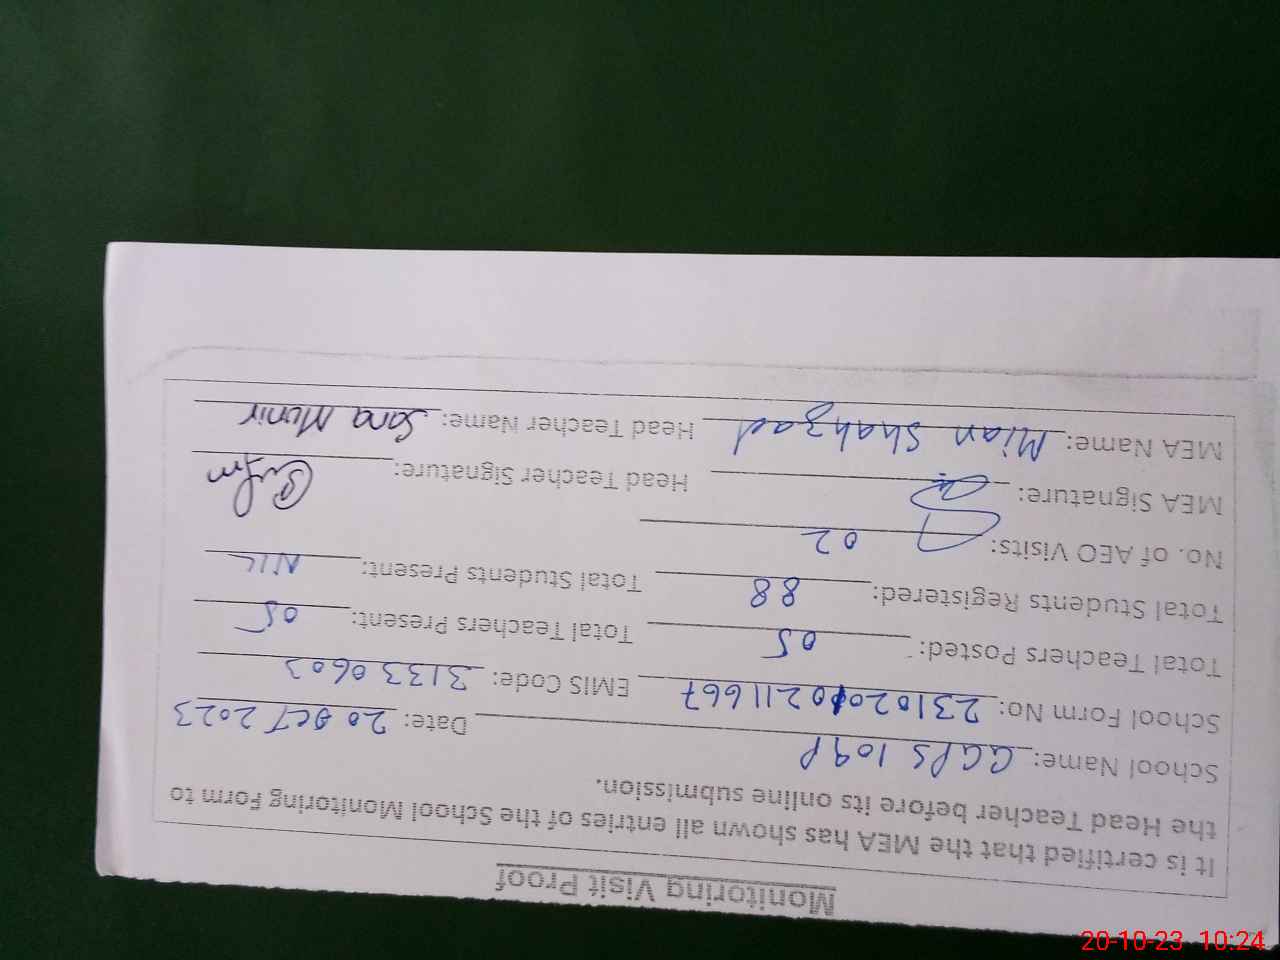 Monitoring Visit Proof
It is certified that the MEA has shown all entries of the School Monitoring Form to
the Head Teacher before its online submission.
School Name: GGPS 109P Date: 20 OCT 2023
School Form No: EMIS Code: 31330603
Total Teachers Posted: 05 Total Teachers Present: 05
Total Students Registered: 88 Total Students Present: NIL
No. of AEO Visits: 02
MEA Signature: Head Teacher Signature:
MEA Name: Mian Shahzad Head Teacher Name: Sana Munir
20-10-23 10:24